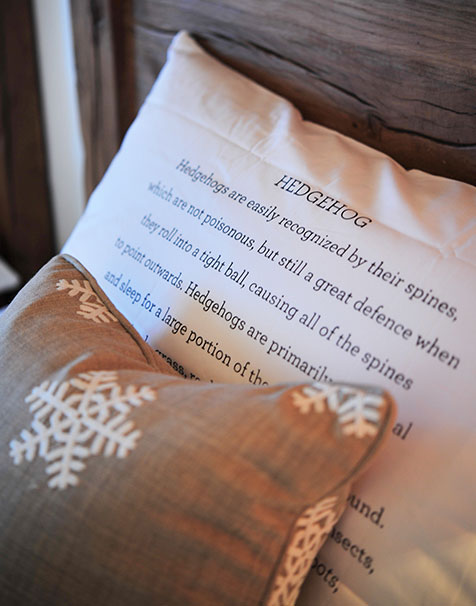 HEDGEHOG
Hedgehogs are easily recognized by their spines,
which are not poisonous, but still a great defence when
they roll into a tight ball, causing all of the spines
to point outwards. Hedgehogs are primarily
and sleep for a large portion of the
grass, al
ound.
sects,
oots,